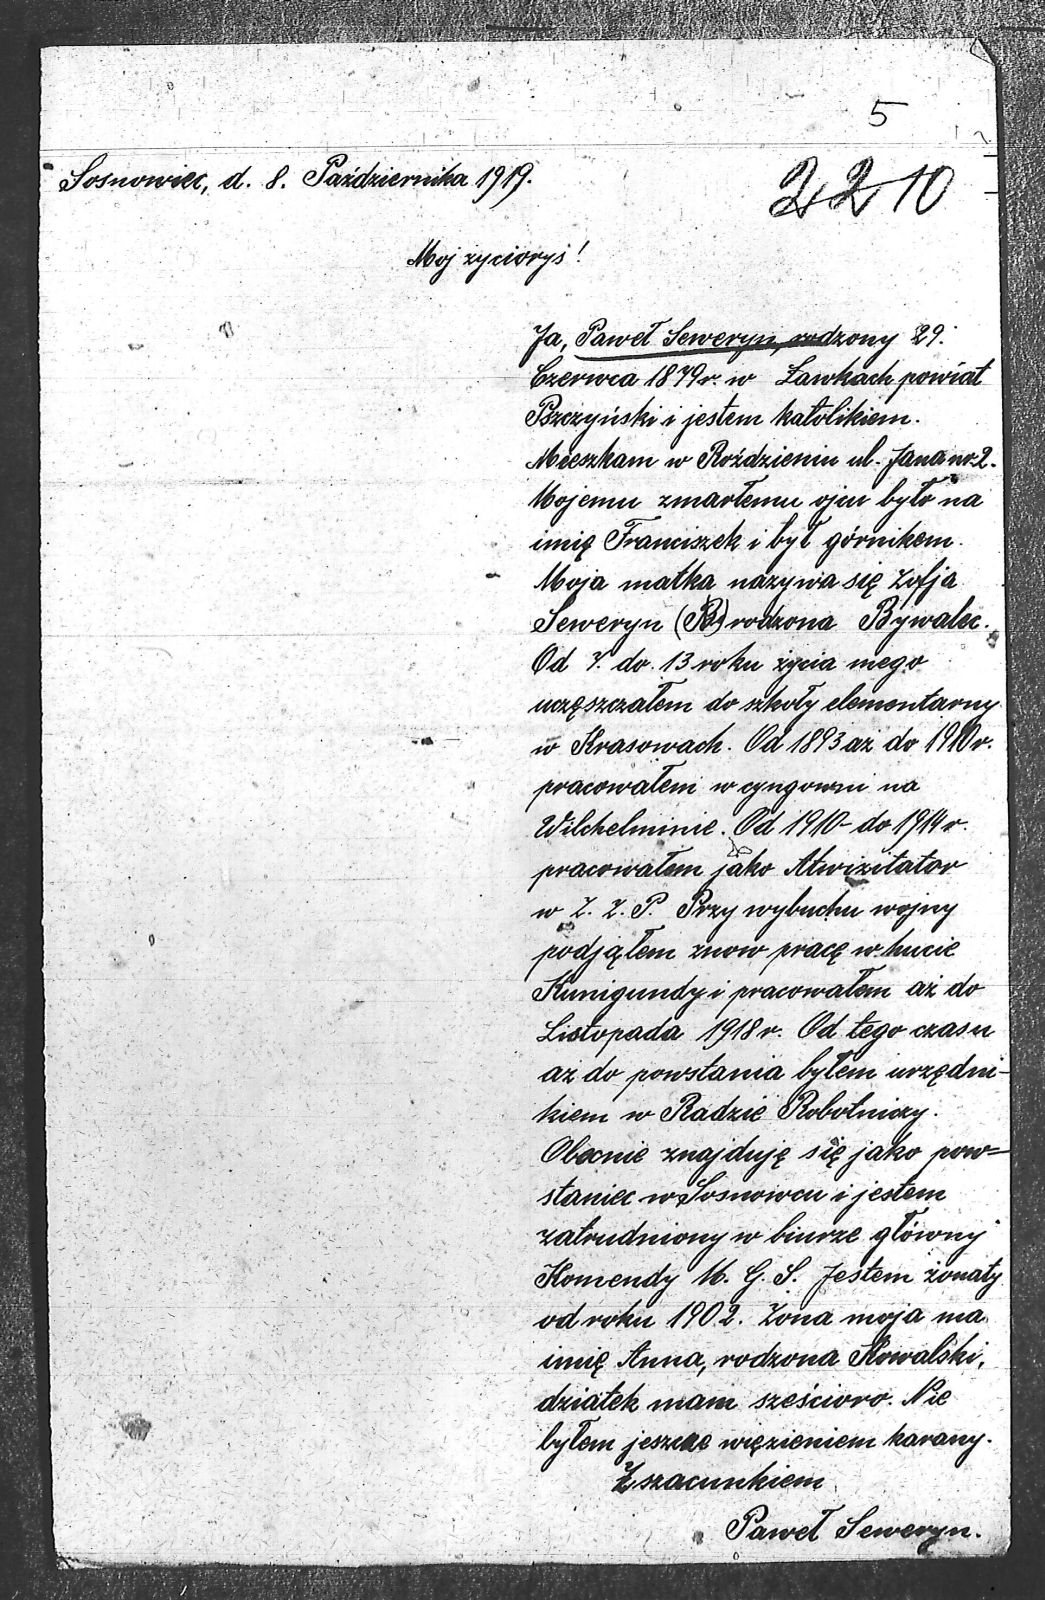 5
2210
Sosnowiec, d. 8. Października 1919.
Moj życiorys!
Ja, Paweł Seweryn, rodzony 29.
Czerwca 1879 r. w Ławkach powiat
Pszczyński i jestem katolikiem.
Mieszkam w Roździeniu ul. Jana nr 2.
Mojemu zmarłemu ojcu było na
imię Franciszek i był górnikem.
Moja matka nazywa się Zofja
Seweryn (B) rodzona Bywalec.
Od 7. do. 13 roku życia mego
uczęszczałem do szkoły elementarny
w Krasowach. Od 1893 aż do 1910 r.
pracowałem w cyngowni na
Wilchelminie. Od 1910 - do 1914 r.
pracowałem jako
w Z. Z. P. Przy wybuchu wojny
podjąłem znow pracę w hucie
Kunigundy i pracowałem aż do
Listopada 1918 r. Od tego czasu
aż do powstania byłem urzędni-
kiem w Radzie Robotniczy.
Obecnie znajduję się jako pow=
staniec w Sosnowcu i jestem
zatrudniony w biurze główny
Komendy M. G. S. Jestem żonaty
od roku 1902. Żona moja ma
imię Anna, rodzona Kowalski,
dziatek mam sześcioro. Nie
byłem jeszcze więzieniem karany.
Z szacunkiem
Paweł Seweryn.